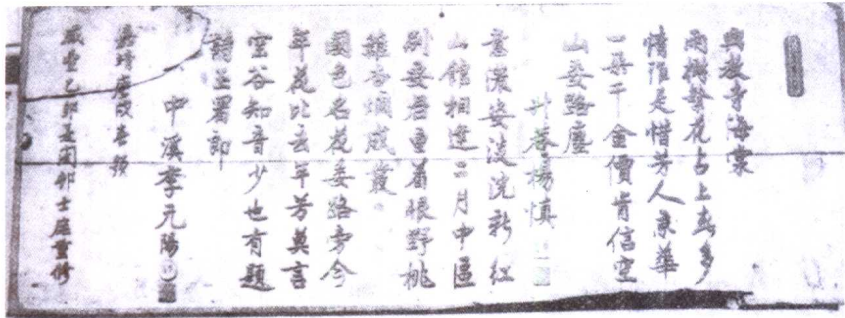 興教寺海棠
兩樹繁花占上春多
情誰是惜芳人京華
一朶千金價肯信空
山委路塵
升菴楊慎
安波浣新紅
山館相逢二月中
野桃
雜杏爛成叢
國色名花委路旁今
年花比去年芳莫言
空谷知音少也有題
詩玉署郎
中溪李元陽
嘉靖庚戌春
咸豐乙卯孟閏邨士庭重修